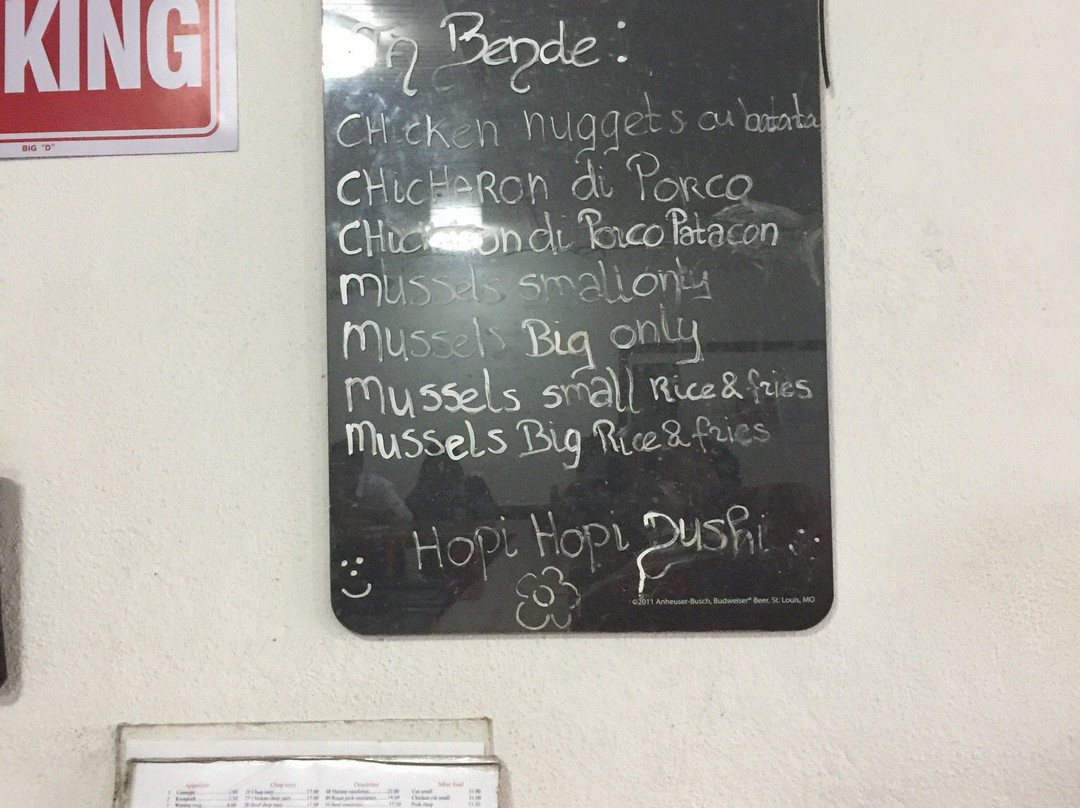 KING
BIG "D"
Bende:
CHicken nuggets cu batata
CHicHARon di Porco
CHicharon di Porco Patacon
mussels small only
mussels Big only
mussels small Rice & fries
mussels Big Rice & fries
Hopi Hopi Dushi
©2011 Anheuser-Busch, Budweiser® Beer, St. Louis, MO
Appetizer Chop suey Omelettes Mini food